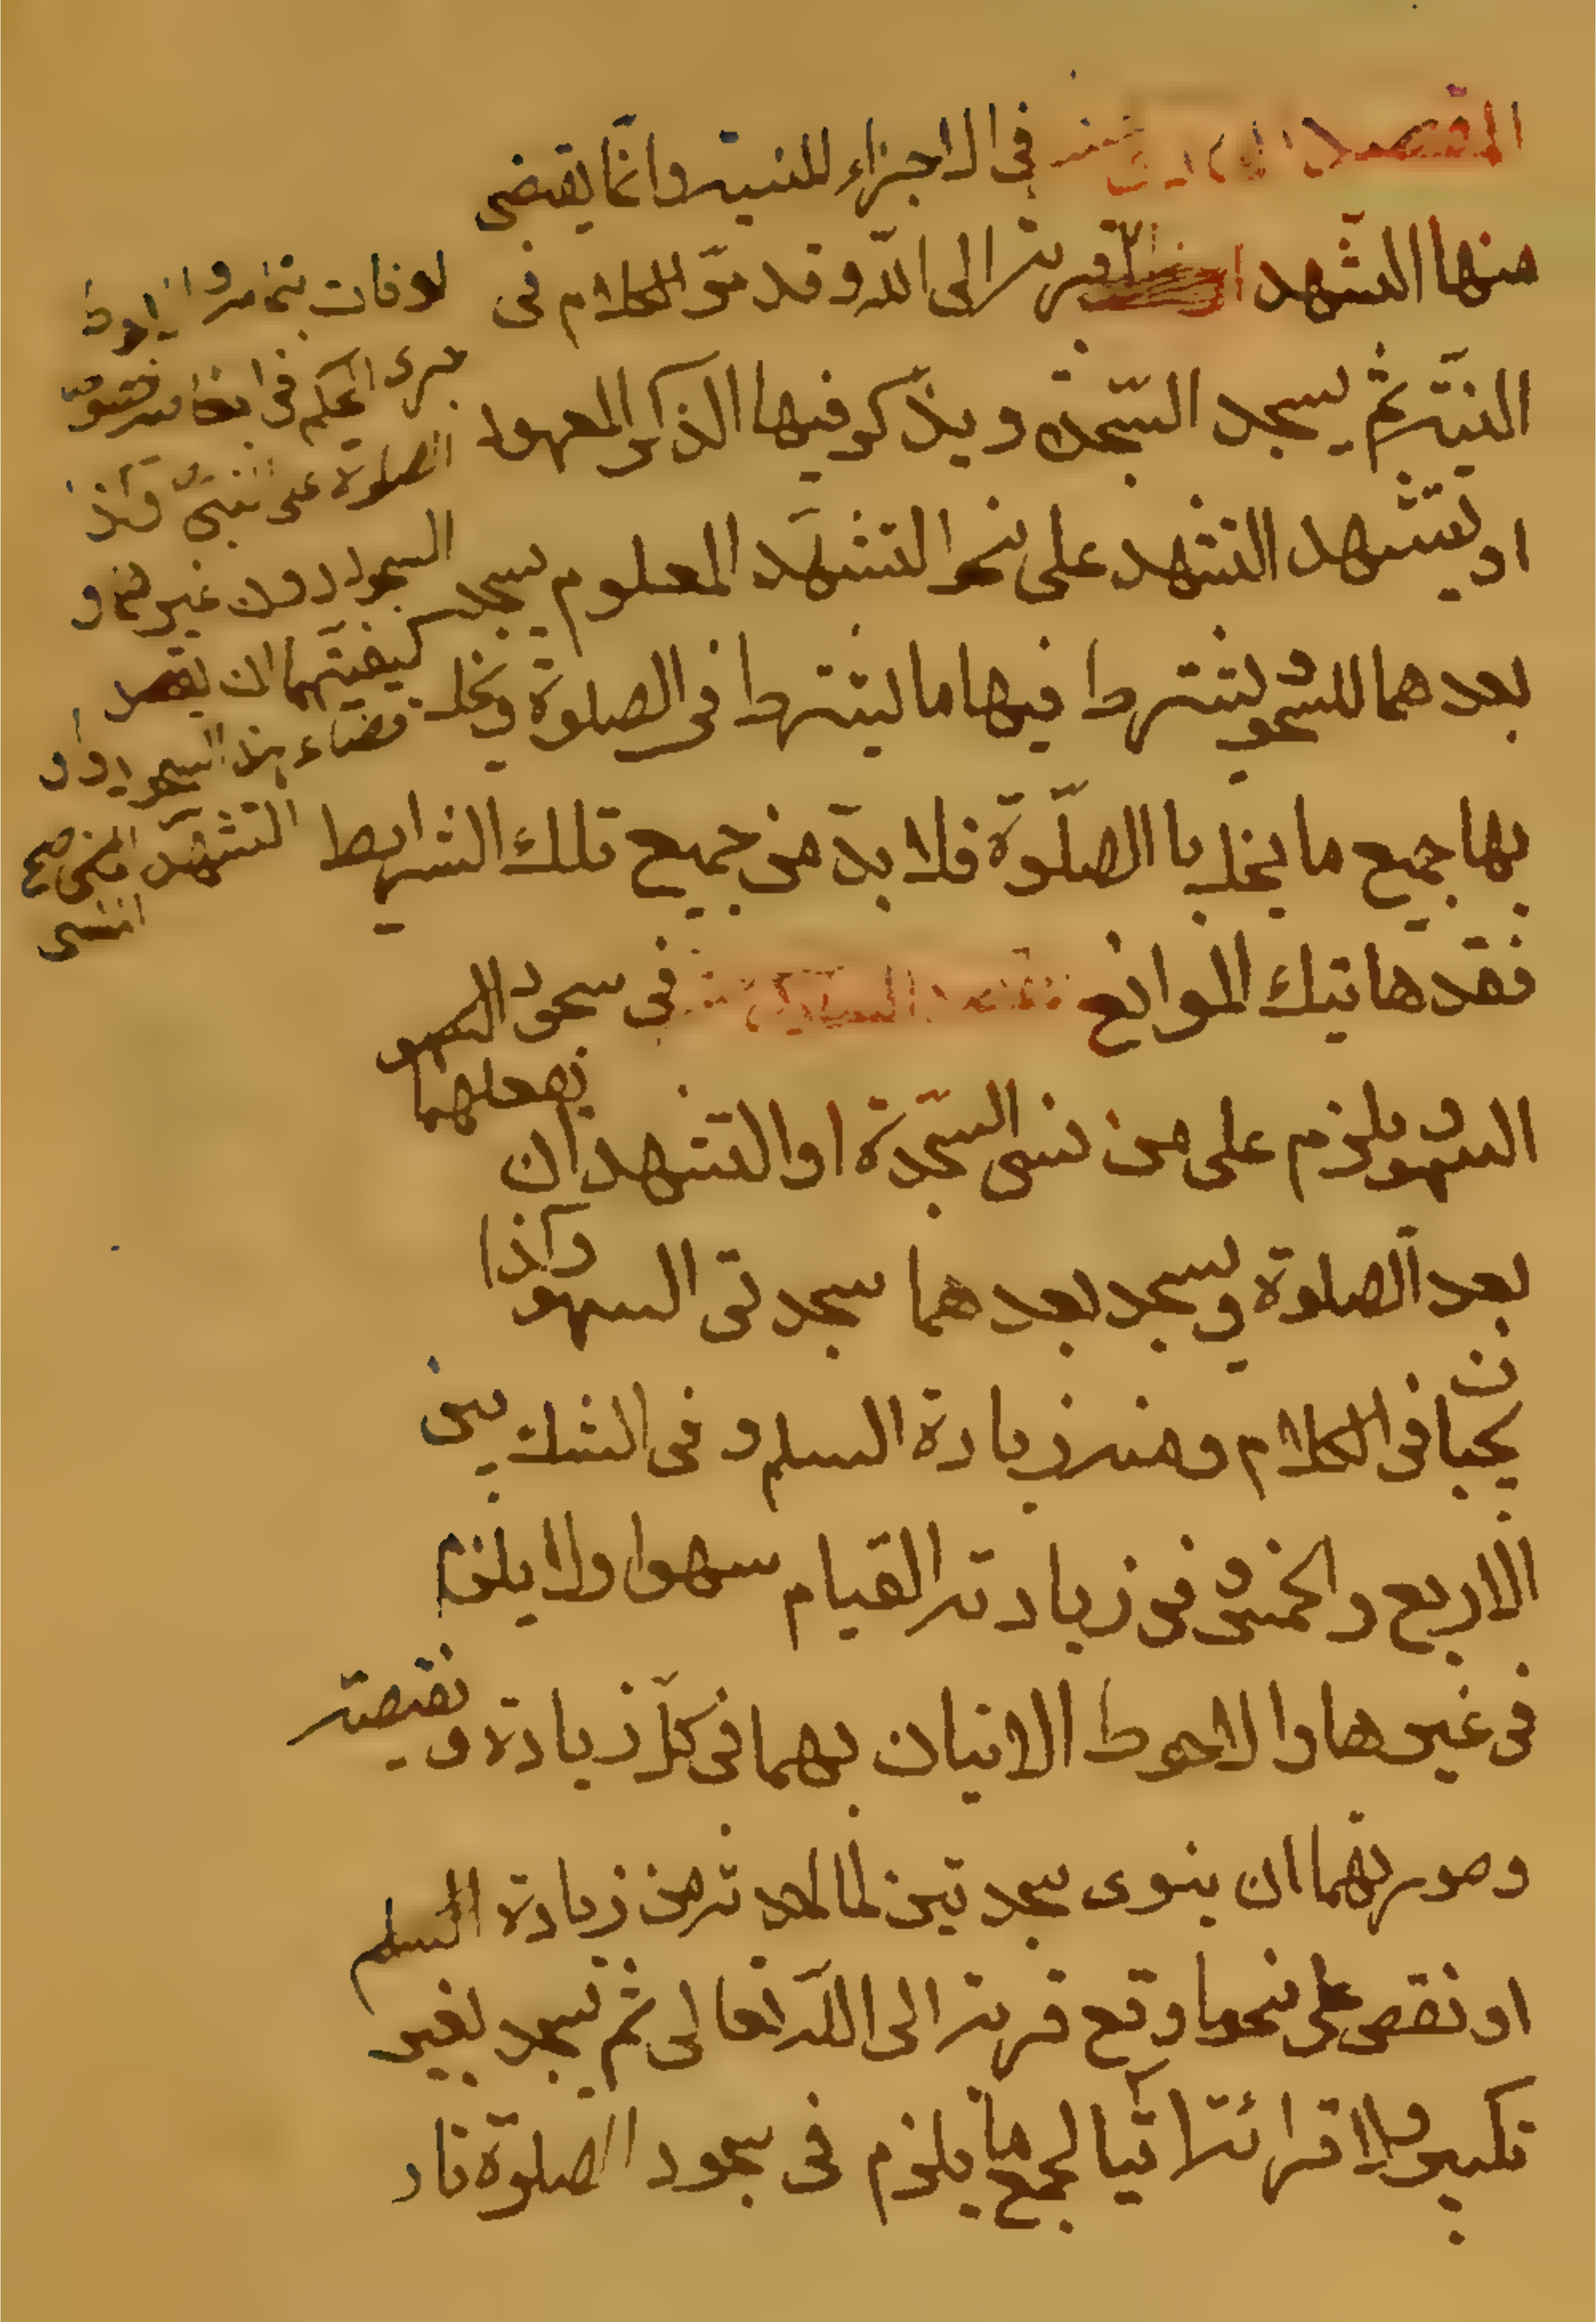 المقصد في الاجزاء المنسية وانما يقضى
منها التشهد قربة الى الله وقد مر الكلام في
النية ثم يسجد السجدة ويذكر فيها الذكر المعهود
او يتشهد التشهد على نحو التشهد المعلوم يسجد
بعدهما للسهو ويشترط فيها ما يشترط في الصلوة ويخل
بها جميع ما يخل با الصلوة فلا بد من جميع تلك الشرايط
فقد هاتيك الموانع في سجود السهو
السهو ويلزم على من نسى السجدة او التشهد ان يفعلهما
بعد الصلوة ويسجد بعدهما سجدتى السهو وكذا
يجبان في الكلام ومنه زيادة السلم وفى الشك بين
الاربع والخمس وفى زيادته القيام سهوا ولا يلزم
في غيرها والاحوط الاتيان بهما في كل زيادة ونقيصة
وصورتهما ان ينوى سجدتين لما احدثه من زيادة السلم
او نقص على نحو ما وقع قربة الى الله تعالى ثم يسجد بغير
تكبير ولا قرائة اتيا لجميع ما يلزم في سجود الصلوة تار
لو فات
جرى الحكم في
الصلوة على النبى وكذا
السجود دون غيرهما و
كيفيتهما ان يقصد
قضاء هذا السجود او
التشهد